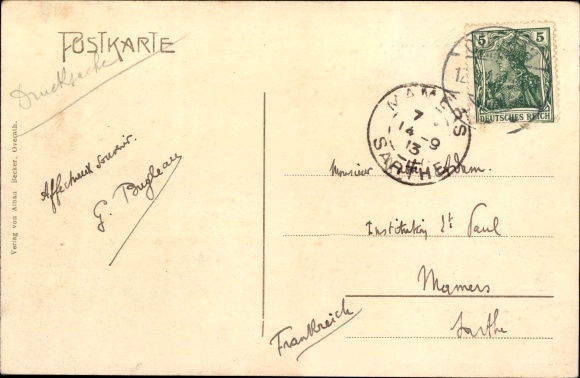 POSTKARTE
Drucksache
5 5
DEUTSCHES REICH
MAMERS
7
14-9
13
SARTHE
Affectueux souvenir.
G. Bugleau
Verlag von Adam Becker, Overath.
Monsieur Adam.
Institution St Paul
Mamers
Sarthe
Frankreich